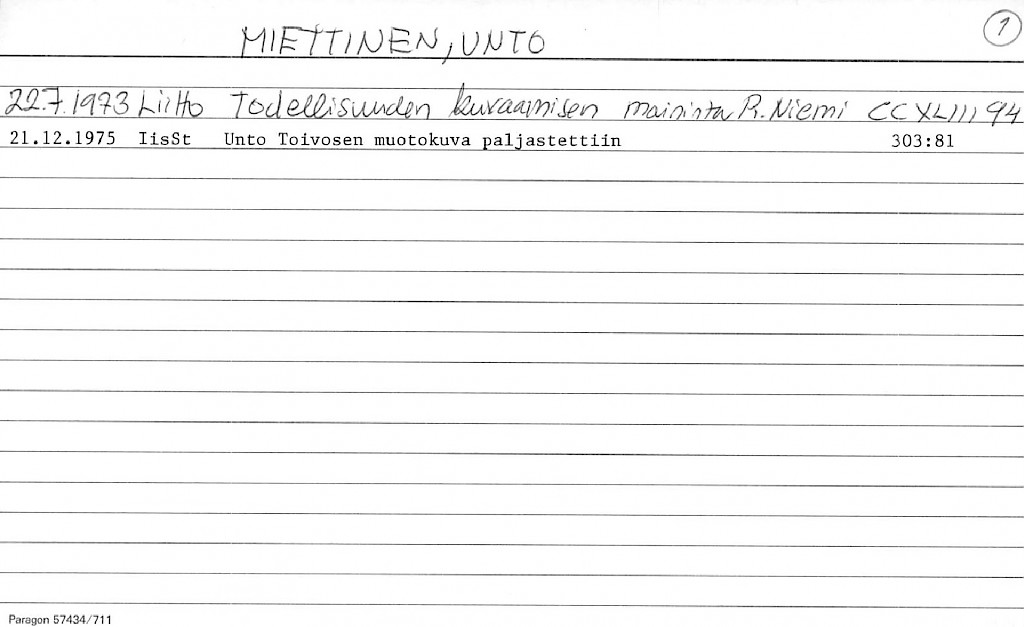 MIETTINEN, UNTO 1
22.7.1973 Liitto Todellisuuden kuvaamisen maininta R. Niemi CCXLIII 94
21.12.1975 IisSt Unto Toivosen muotokuva paljastettiin 303:81
Paragon 57434/711